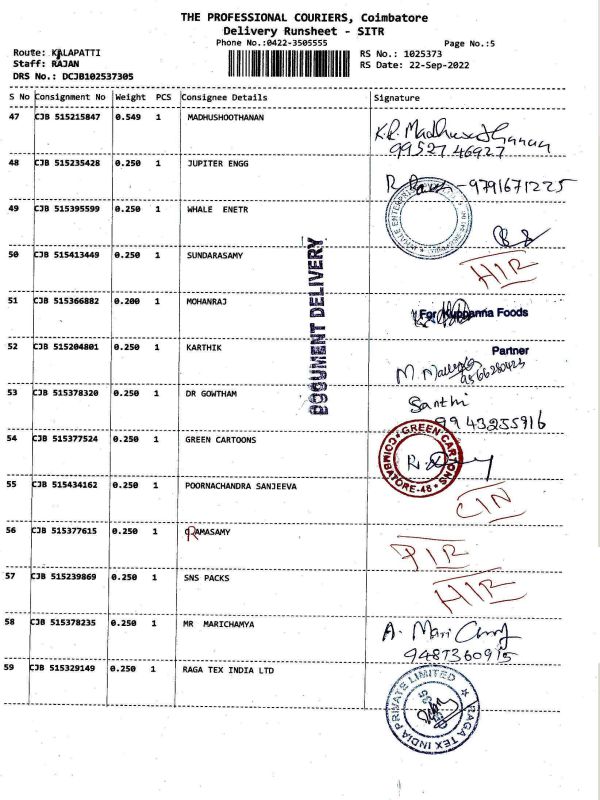 THE PROFESSIONAL COURIERS, Coimbatore
Delivery Runsheet - SITR
Phone No.:0422-3505555
Page No.:5
Route: KALAPATTI
RS No.: 1025373
Staff: RAJAN
RS Date: 22-Sep-2022
DRS No.: DCJB102537305
S No Consignment No Weight PCS Consignee Details Signature
47 CJB 515215847 0.549 1 MADHUSHOOTHANAN K.R. Madhusoothanan
99527 46927
48 CJB 515235428 0.250 1 JUPITER ENGG R -9791671225
49 CJB 515395599 0.250 1 WHALE ENETR
50 CJB 515413449 0.250 1 SUNDARASAMY HIR
51 CJB 515366882 0.200 1 MOHANRAJ For Kuppanna Foods
DOCUMENT DELIVERY
52 CJB 515204801 0.250 1 KARTHIK Partner
M.
53 CJB 515378320 0.250 1 DR GOWTHAM Santhi
9943255916
54 CJB 515377524 0.250 1 GREEN CARTOONS GREEN CARTOONS COIMBATORE-48
55 CJB 515434162 0.250 1 POORNACHANDRA SANJEEVA CIN
56 CJB 515377615 0.250 1 RAMASAMY PIR
57 CJB 515239869 0.250 1 SNS PACKS HIR
58 CJB 515378235 0.250 1 MR MARICHAMYA A. Mari
9487360915
59 CJB 515329149 0.250 1 RAGA TEX INDIA LTD RAGA TEX INDIA PRIVATE LIMITED